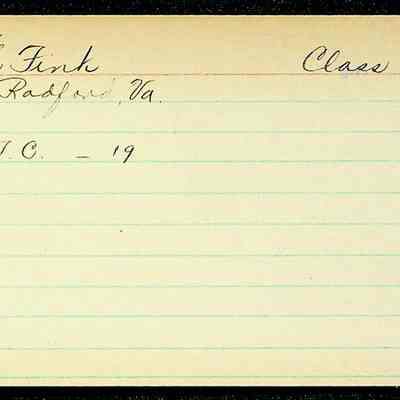 Fink Class
Radford, Va.
T. C. – 19